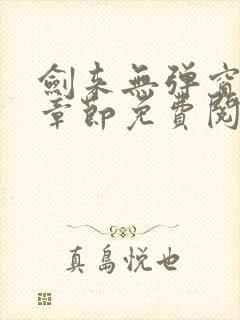 劍来無弹窗
章節免費閱
真島悦也